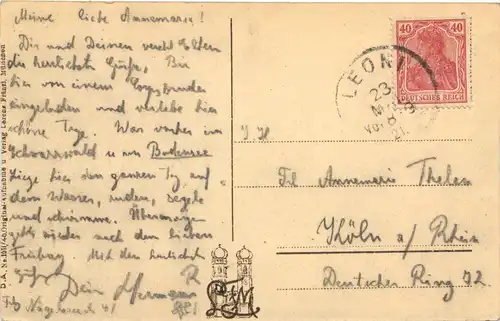 Meine liebe Annemarie!
Dir und Deinen verehrt Eltern
die herzlichsten Grüße, Bin
hier von einem
eingeladen und verlebe hier
schöne Tage. Was vorher im
Schwarzwald u am Bodensee
liege hier den ganzen Tg. auf
dem Wasser, rudere, segele
und schwimme. Übermorgen
geht's wieder nach dem lieben
Freiburg Mit den herzlichst
Dein Hermann
Fbg 41
D. A. No.
Original-Aufnahme u. Verlag München
40 40
DEUTSCHES REICH
LEONI
23
8
21
Frl Annemarie Thelen
Köln a/Rhein
Deutscher Ring 72